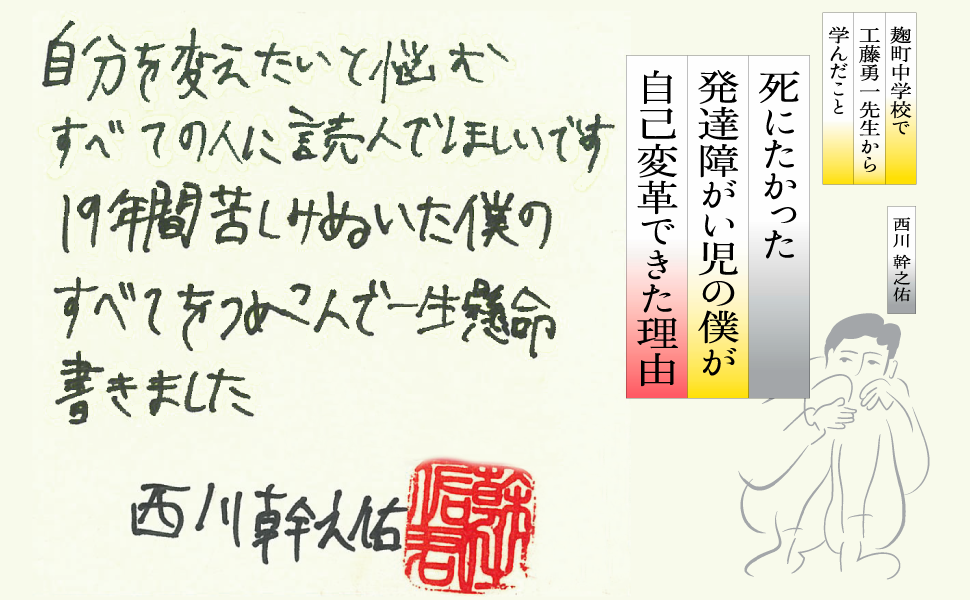 自分を変えたいと悩む
すべての人に読んでほしいです
19年間苦しみぬいた僕の
すべてをつめこんで一生懸命
書きました
西川幹之佑
麹町中学校で
工藤勇一先生から
学んだこと
死にたかった
発達障がい児の僕が
自己変革できた理由
西川 幹之佑